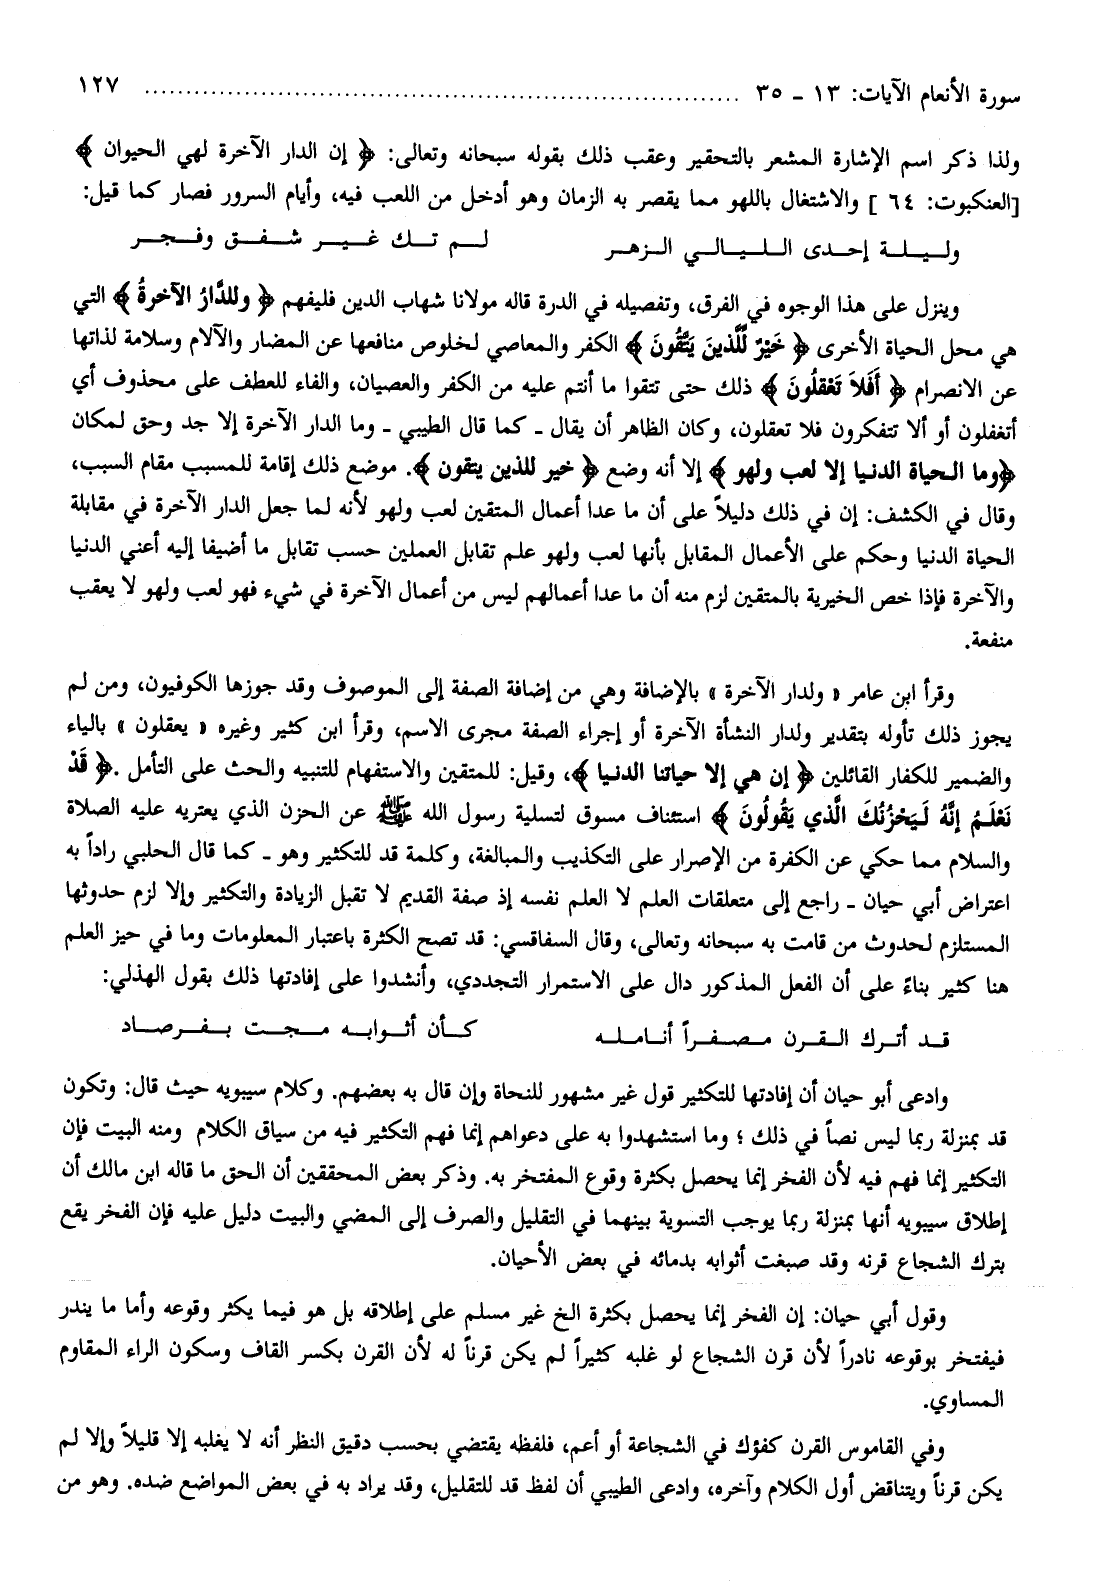 سورة الأنعام الآيات: ١٣ ـ ٣٥ ........................................................................ ١٢٧
ولذا ذكر اسم الإشارة المشعر بالتحقير وعقب ذلك بقوله سبحانه وتعالى: ﴿ إن الدار الآخرة لهي الحيوان ﴾
[العنكبوت: ٦٤ ] والاشتغال باللهو مما يقصر به الزمان وهو أدخل من اللعب فيه، وأيام السرور فصار كما قيل:
ولـيـلـة إحـدى الـلـيـالـي الـزهـر لـم تـك غـيـر شـفـق وفـجـر
وينزل على هذا الوجوه في الفرق، وتفصيله في الدرة قاله مولانا شهاب الدين فليفهم ﴿ وللدَّارُ الآخرةُ ﴾ التي
هي محل الحياة الأخرى ﴿ خَيْرٌ لِّلَّذينَ يَتَّقُونَ ﴾ الكفر والمعاصي لخلوص منافعها عن المضار والآلام وسلامة لذاتها
عن الانصرام ﴿ أَفَلاَ تَعْقلُونَ ﴾ ذلك حتى تتقوا ما أنتم عليه من الكفر والعصيان، والفاء للعطف على محذوف أي
أتغفلون أو ألا تتفكرون فلا تعقلون، وكان الظاهر أن يقال ـ كما قال الطيبي ـ وما الدار الآخرة إلا جد وحق لمكان
﴿وما الحياة الدنيا إلا لعب ولهو ﴾ إلا أنه وضع ﴿ خير للذين يتقون ﴾. موضع ذلك إقامة للمسبب مقام السبب،
وقال في الكشف: إن في ذلك دليلاً على أن ما عدا أعمال المتقين لعب ولهو لأنه لما جعل الدار الآخرة في مقابلة
الحياة الدنيا وحكم على الأعمال المقابل بأنها لعب ولهو علم تقابل العملين حسب تقابل ما أضيفا إليه أعني الدنيا
والآخرة فإذا خص الخيرية بالمتقين لزم منه أن ما عدا أعمالهم ليس من أعمال الآخرة في شيء فهو لعب ولهو لا يعقب
منفعة.
وقرأ ابن عامر « ولدار الآخرة » بالإضافة وهي من إضافة الصفة إلى الموصوف وقد جوزها الكوفيون، ومن لم
يجوز ذلك تأوله بتقدير ولدار النشأة الآخرة أو إجراء الصفة مجرى الاسم، وقرأ ابن كثير وغيره « يعقلون » بالياء
والضمير للكفار القائلين ﴿ إن هي إلا حياتنا الدنيا ﴾، وقيل: للمتقين والاستفهام للتنبيه والحث على التأمل .﴿ قَدْ
نَعْلَمُ إنَّهُ لَيَحْزُنُكَ الَّذي يَقُولُونَ ﴾ استئناف مسوق لتسلية رسول الله ﷺ عن الحزن الذي يعتريه عليه الصلاة
والسلام مما حكي عن الكفرة من الإصرار على التكذيب والمبالغة، وكلمة قد للتكثير وهو ـ كما قال الحلبي راداً به
اعتراض أبي حيان ـ راجع إلى متعلقات العلم لا العلم نفسه إذ صفة القديم لا تقبل الزيادة والتكثير وإلا لزم حدوثها
المستلزم لحدوث من قامت به سبحانه وتعالى، وقال السفاقسي: قد تصح الكثرة باعتبار المعلومات وما في حيز العلم
هنا كثير بناءً على أن الفعل المذكور دال على الاستمرار التجددي، وأنشدوا على إفادتها ذلك بقول الهذلي:
قـد أتـرك الـقـرن مـصـفـراً أنـامـلـه كـأن أثـوابـه مـجـت بـفـرصـاد
وادعى أبو حيان أن إفادتها للتكثير قول غير مشهور للنحاة وإن قال به بعضهم. وكلام سيبويه حيث قال: وتكون
قد بمنزلة ربما ليس نصاً في ذلك ؛ وما استشهدوا به على دعواهم إنما فهم التكثير فيه من سياق الكلام ومنه البيت فإن
التكثير إنما فهم فيه لأن الفخر إنما يحصل بكثرة وقوع المفتخر به. وذكر بعض المحققين أن الحق ما قاله ابن مالك أن
إطلاق سيبويه أنها بمنزلة ربما يوجب التسوية بينهما في التقليل والصرف إلى المضي والبيت دليل عليه فإن الفخر يقع
بترك الشجاع قرنه وقد صبغت أثوابه بدمائه في بعض الأحيان.
وقول أبي حيان: إن الفخر إنما يحصل بكثرة الخ غير مسلم على إطلاقه بل هو فيما يكثر وقوعه وأما ما يندر
فيفتخر بوقوعه نادراً لأن قرن الشجاع لو غلبه كثيراً لم يكن قرناً له لأن القرن بكسر القاف وسكون الراء المقاوم
المساوي.
وفي القاموس القرن كفؤك في الشجاعة أو أعم، فلفظه يقتضي بحسب دقيق النظر أنه لا يغلبه إلا قليلاً وإلا لم
يكن قرناً ويتناقض أول الكلام وآخره، وادعى الطيبي أن لفظ قد للتقليل، وقد يراد به في بعض المواضع ضده. وهو من